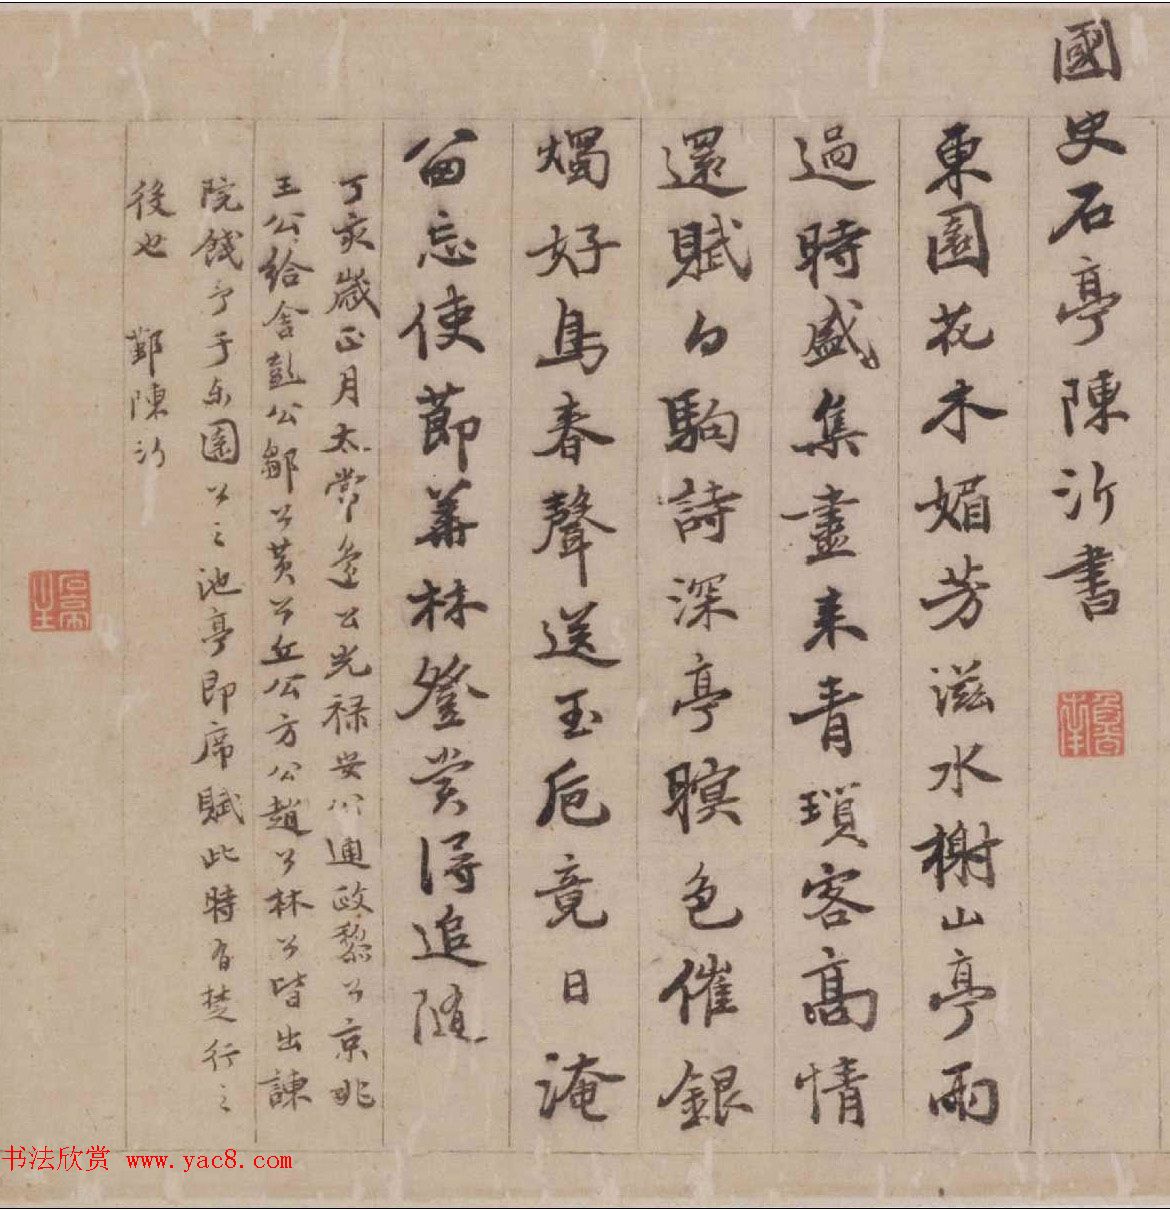 國史石亭陳沂書
東園花木媚芳滋水榭山亭雨
過時盛集盡来青瑣客高情
還賦白駒詩深亭暝色催銀
燭好鳥春聲送玉巵竟日淹
留忘使節華林登賞得追隨
丁亥歲正月太常邊公光禄安公通政黎公京兆
王公給舍彭公鄒公黄公丘公方公趙公林公皆出諫
院餞予于东園公之池亭即席賦此時有楚行之
後也 鄞陳沂
石亭
书法欣赏 www.yac8.com